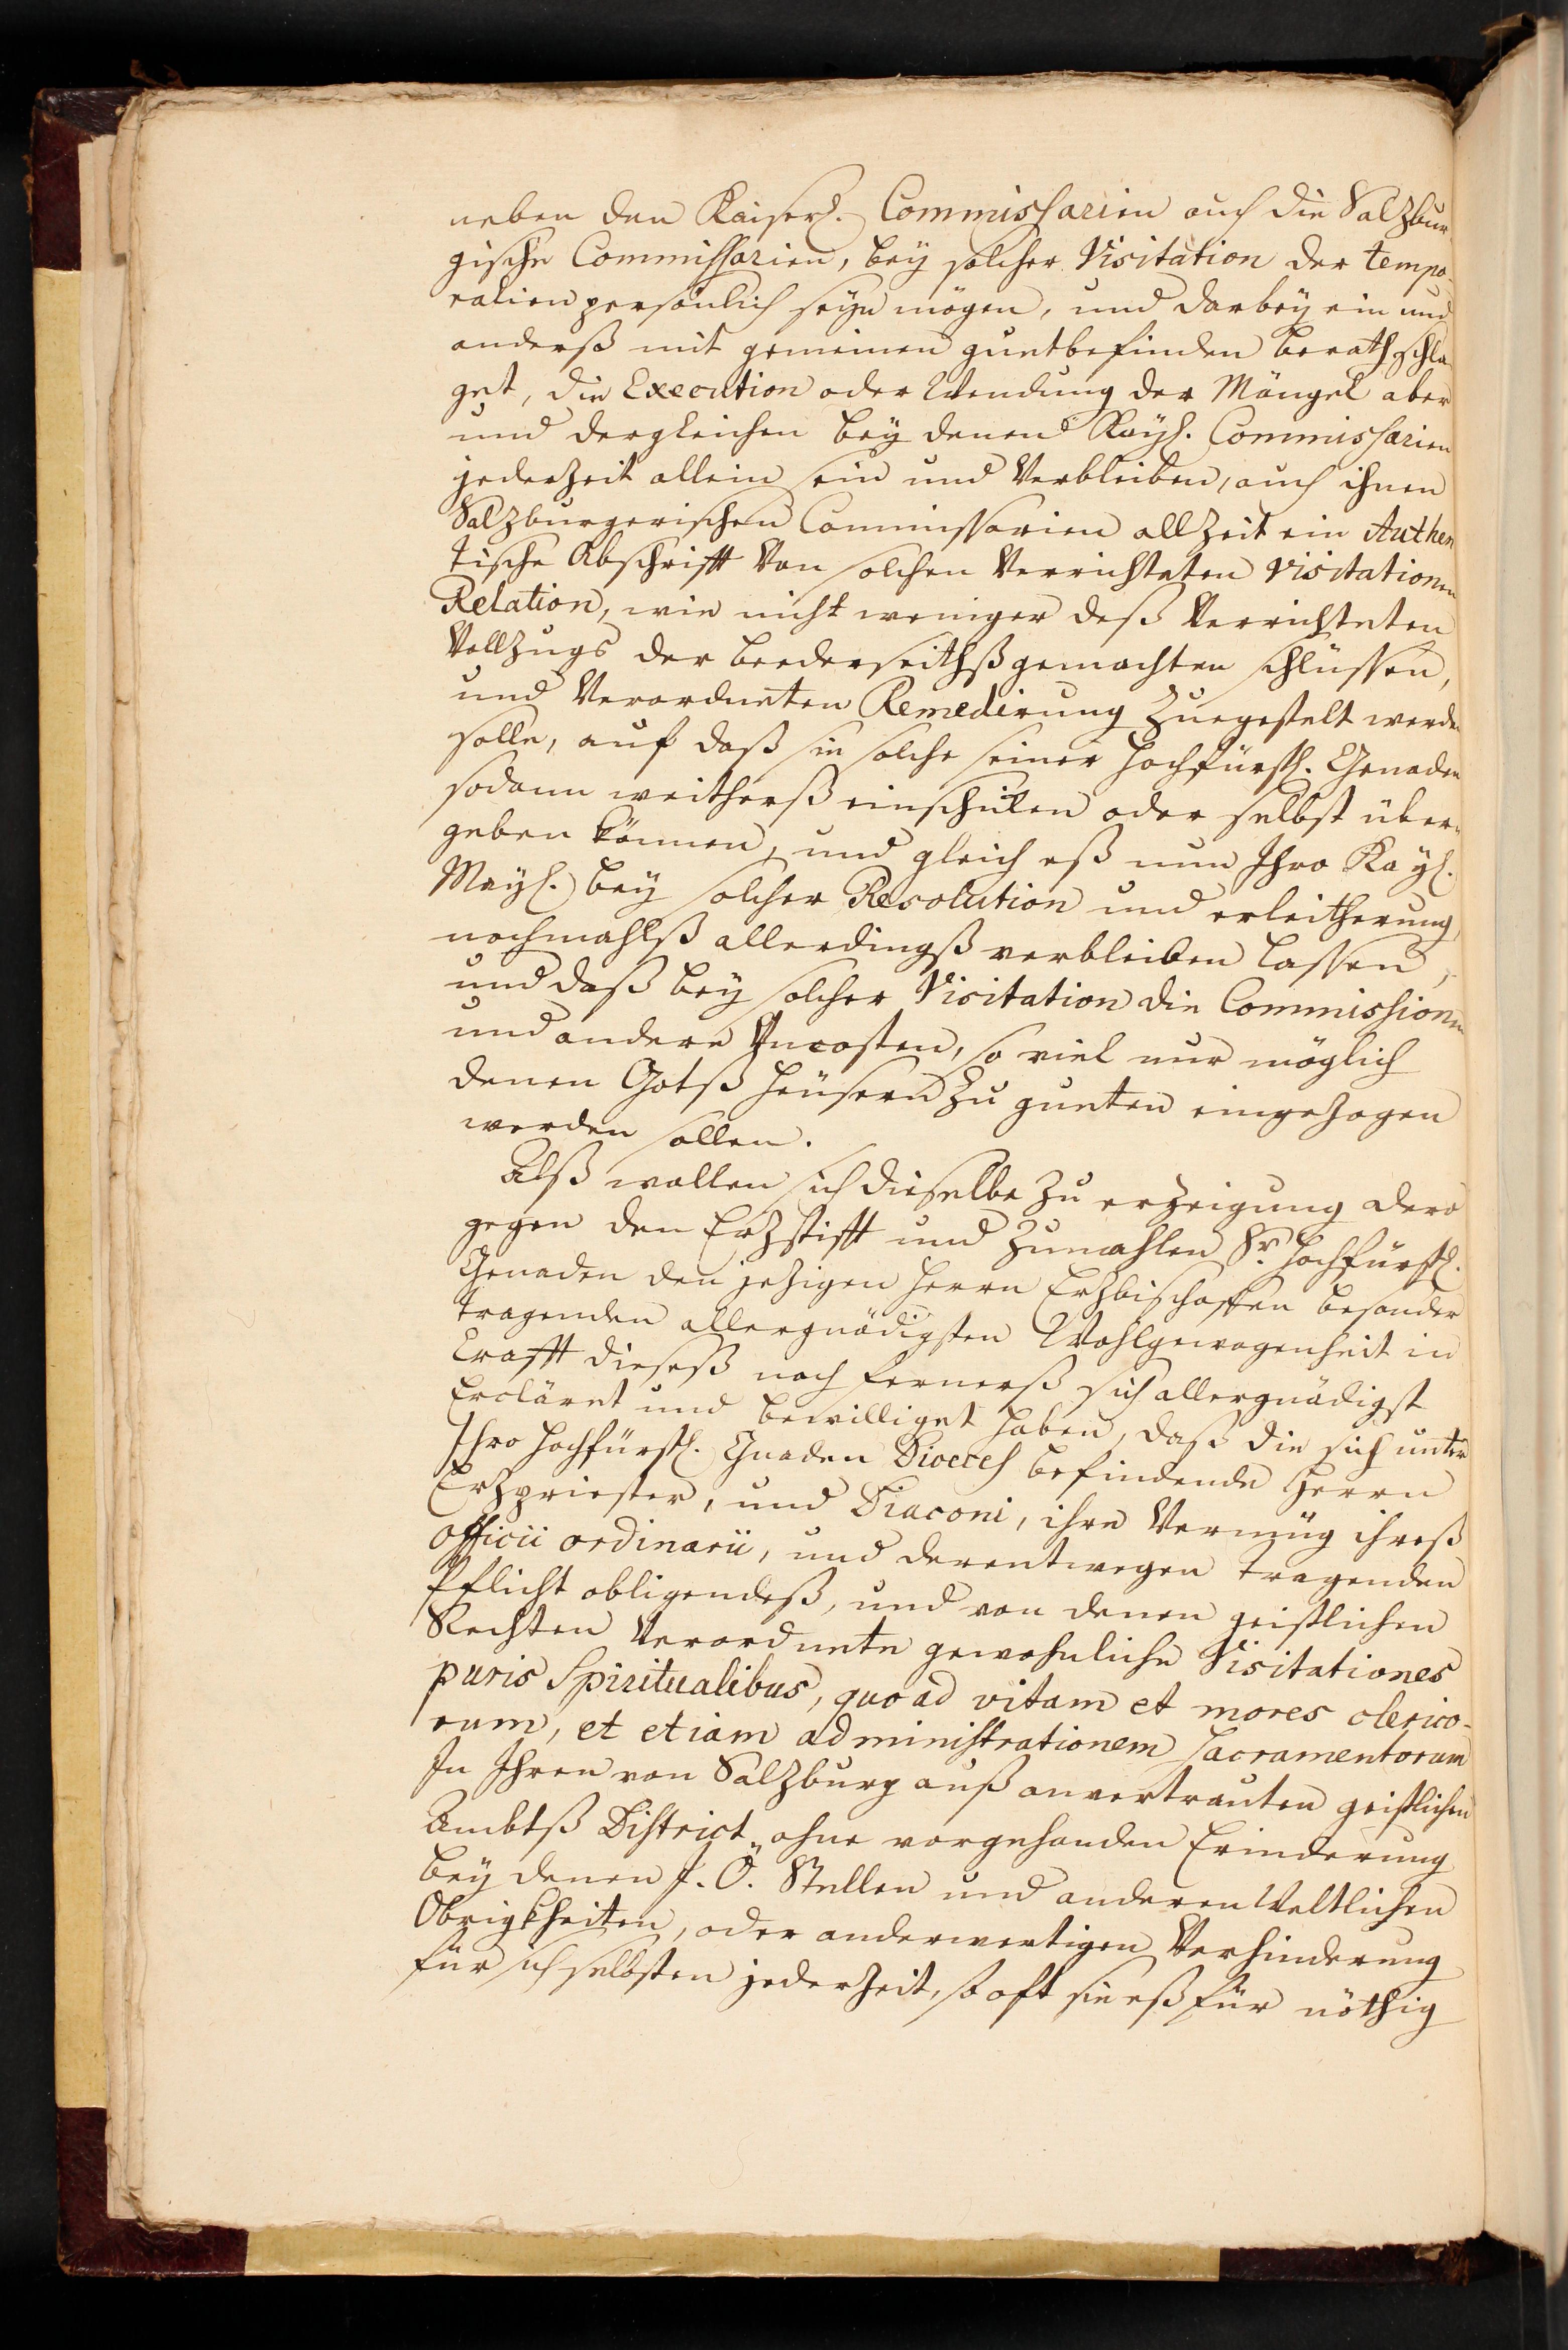 neben den Kaiserl. Commissarien auch die Salzbur
gische Commissarien, bey solcher Visitation der tempo
ralien persönlich seyn mögen, und darbey ein und
anderß mit gemeinen guetbefinden berathschla
get, die Execution oder Wendung der Mängel aber
und dergleichen bey denen Kayl. Commissarien
jederzeit allein sein und Verbleiben, auch ihnen
Salzburgerischen Commissarien allzeit ein Authen
tische Abschrifft Von solchen Verrichteten Visitationen
Relation, wie nicht weniger deß Verrichteten
Vollzugs der beederseithß gemachten schlüssen,
und Verordneten Remedirung zuegestelt werden
solle, auf daß sie solche seiner hochfürstl. Genaden
sodann weitherß einschiken oder selbst über
geben können, und gleich eß nun Ihro Kayl.
Mayl. bey solcher Resolution und erleitherung
nochmahlß allerdingß verbleiben lassen,
und daß bey solcher Visitation die Commissionen
und andere Uncosten, so viel nur möglich
denen Gotß heüsern zu gueten eingezogen
werden sollen.
Alß wollen sich dieselbe zu erzeigung dero
gegen den Erzstifft und zumahlen Sr. hochfürstl.
Genaden den jezigen Herrn Erzbischoffen besonder
tragenden allergnädigsten Wohlgewogenheit in
Crafft diesesß noch fernerß sich allergnädigst
Erclärt und bewilliget haben, daß die sich unter
Ihro hochfürstl. Gnaden Dioeces befindende Herrn
Erzpriester, und Diaconi, ihre Vermüg ihreß
officii ordinarii, und derentwegen tragenden
Pflicht obligendeß, und von denen geistlichen
Rechten Verordnete gewohnliche Visitationes
puris Spiritualibus, quo ad vitam et mores clerico-
rum, et etiam administrationem Sacramentorum
In Ihren von Salzburg auß anvertrauten geistlichen
Ambtß District ohne vorgehenden Erinderung
bey denen I. Ö. Stellen und anderen Weltlichen
Obrigkheiten, oder anderwertigen Verhinderung
für sich selbsten jederzeit, so oft sie eß für nöthig